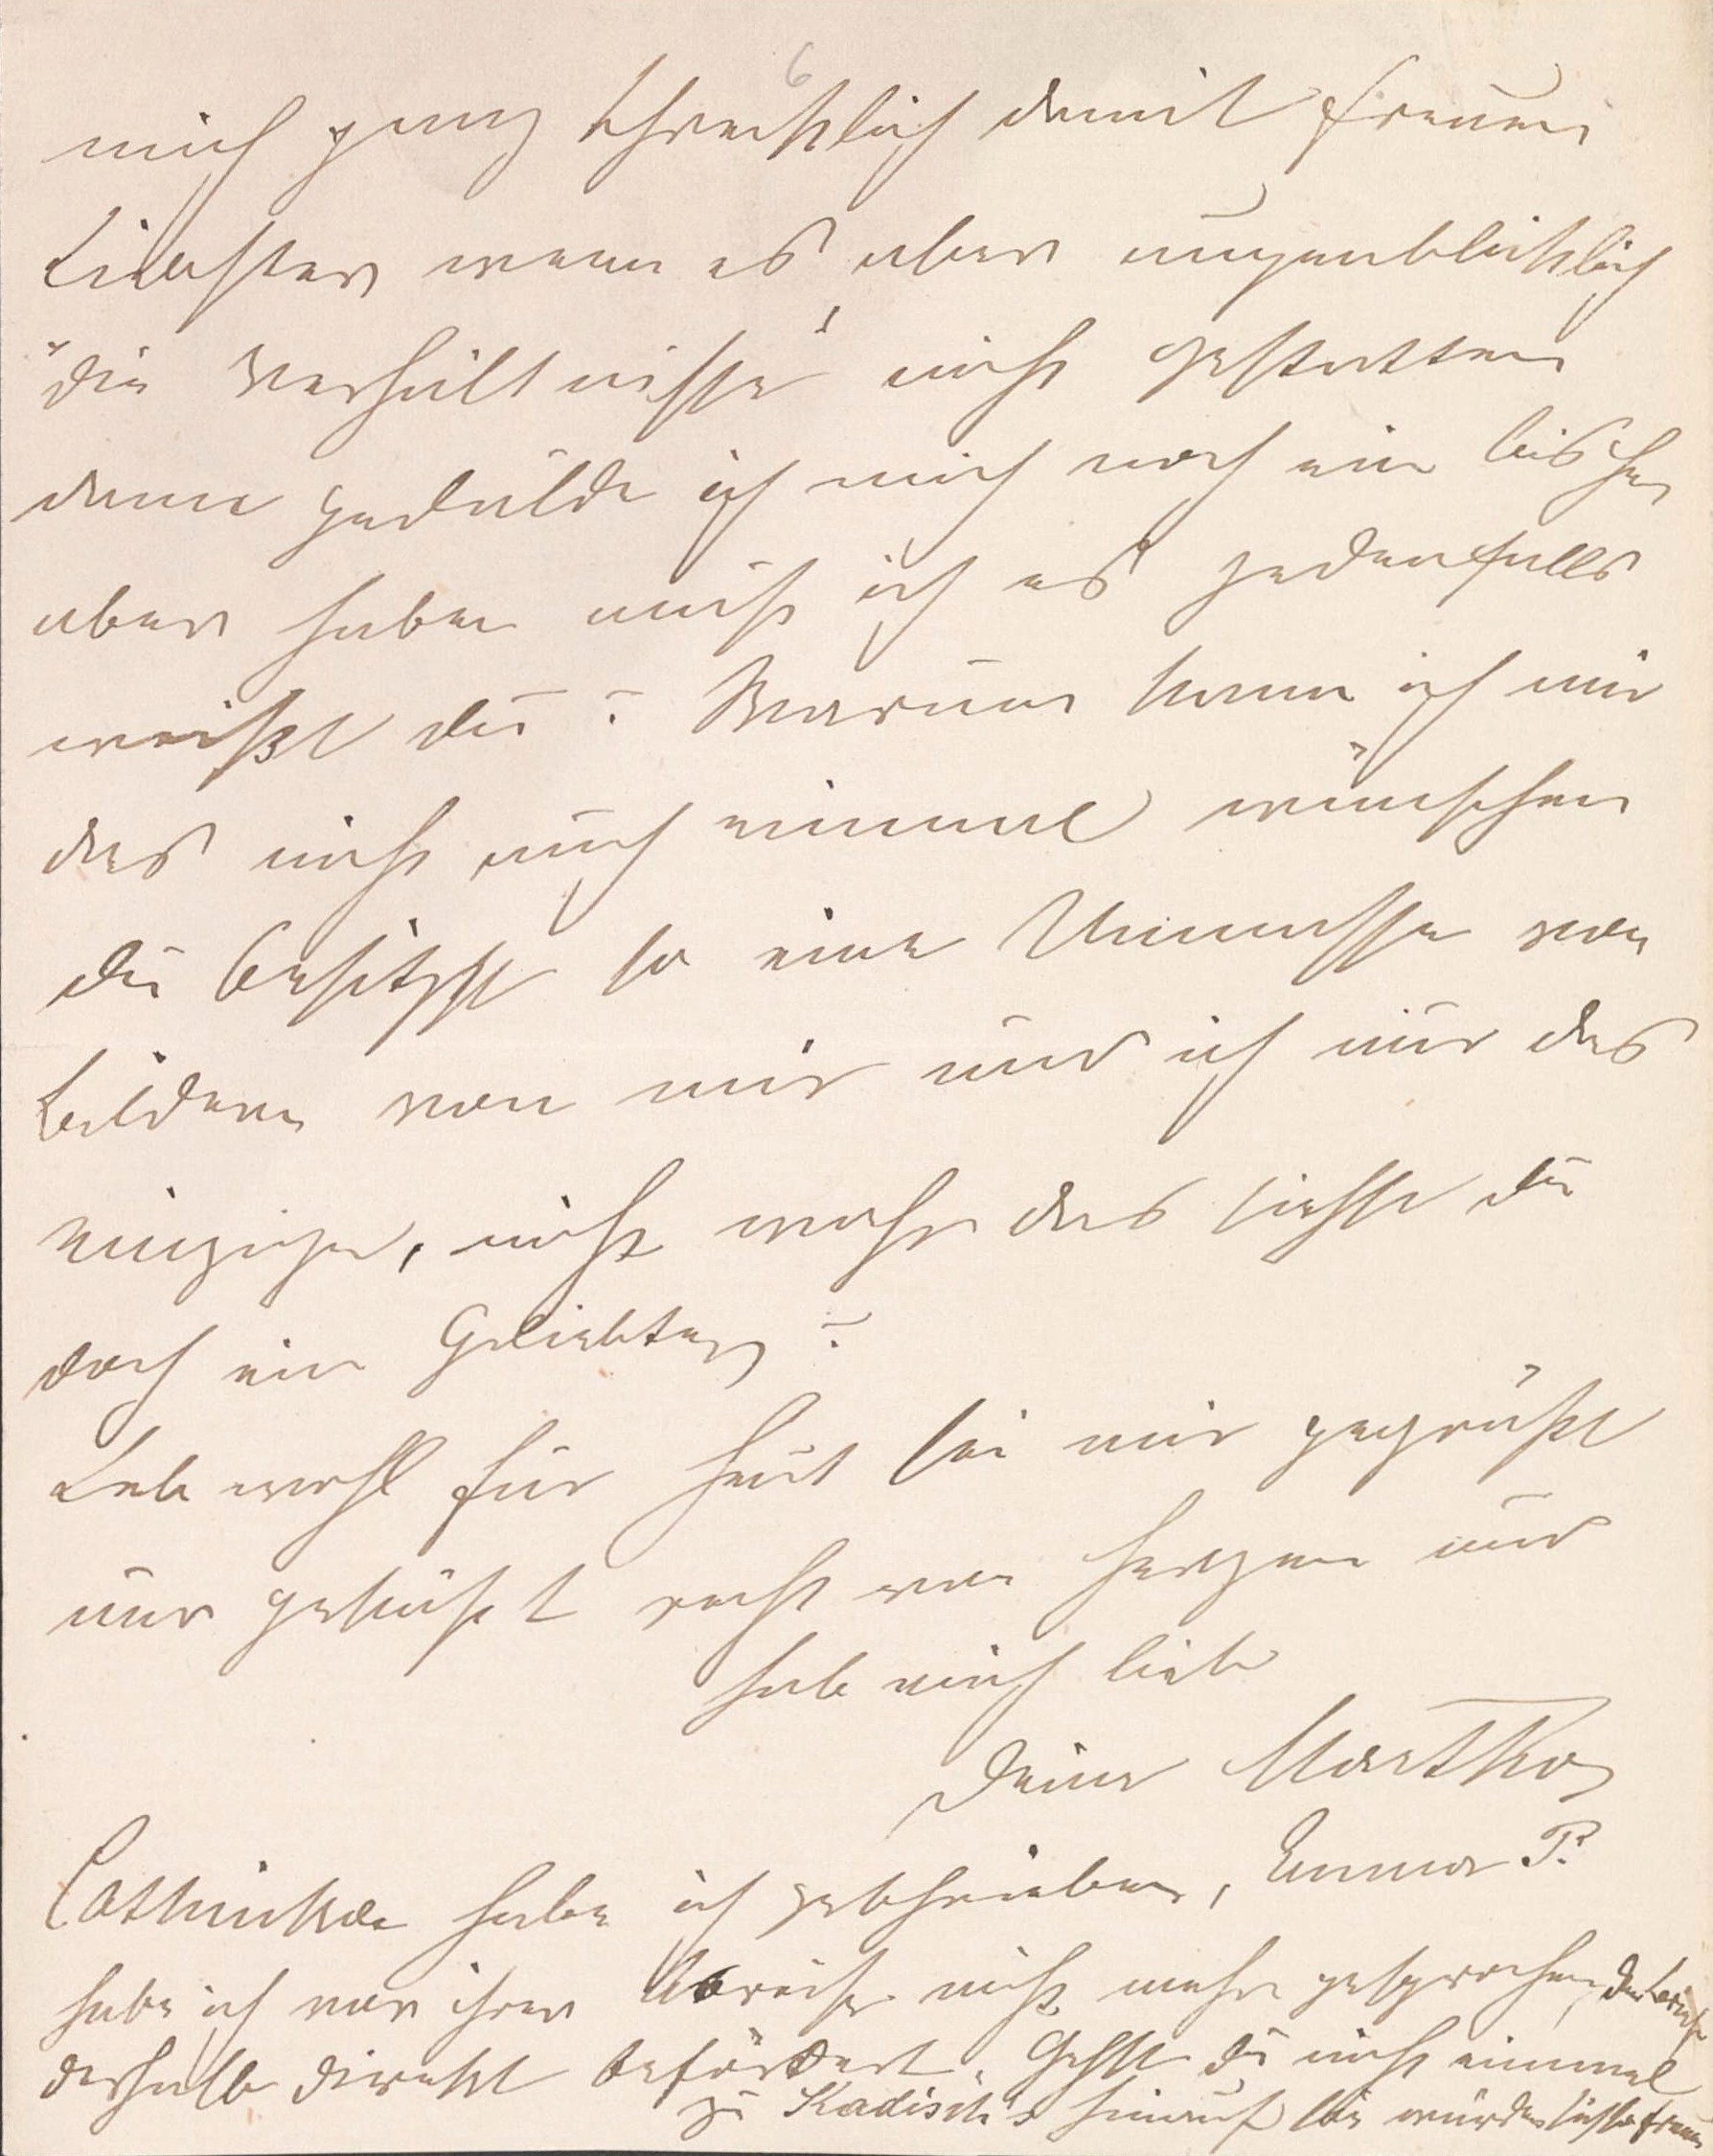 6
mich ganz schrecklich damit freuen
Liebster wenn es aber augenblicklich
"die Verhältnisse" nicht gestatten
dann gedulde ich mich noch ein bischen
aber haben muß ich es jedenfalls
weißt du? Warum kann ich mir
das nicht auch einmal wünschen
du besitzst so eine Unmasse von
Bildern von mir und ich nur das
einzige, nicht wahr das siehst du
doch ein Geliebter?
Leb wohl für heut sei mir gegrüßt
und geküßt recht von Herzen und
hab mich lieb
Deine Martha
Cathinka habe ich geschrieben, Emma P.
habe ich vor ihrer Abreise nicht mehr gesprochen, den
deshalb direkt befördert. Gehst du nicht einmal
zu Kadisch's hinauf sie würden sich freuen